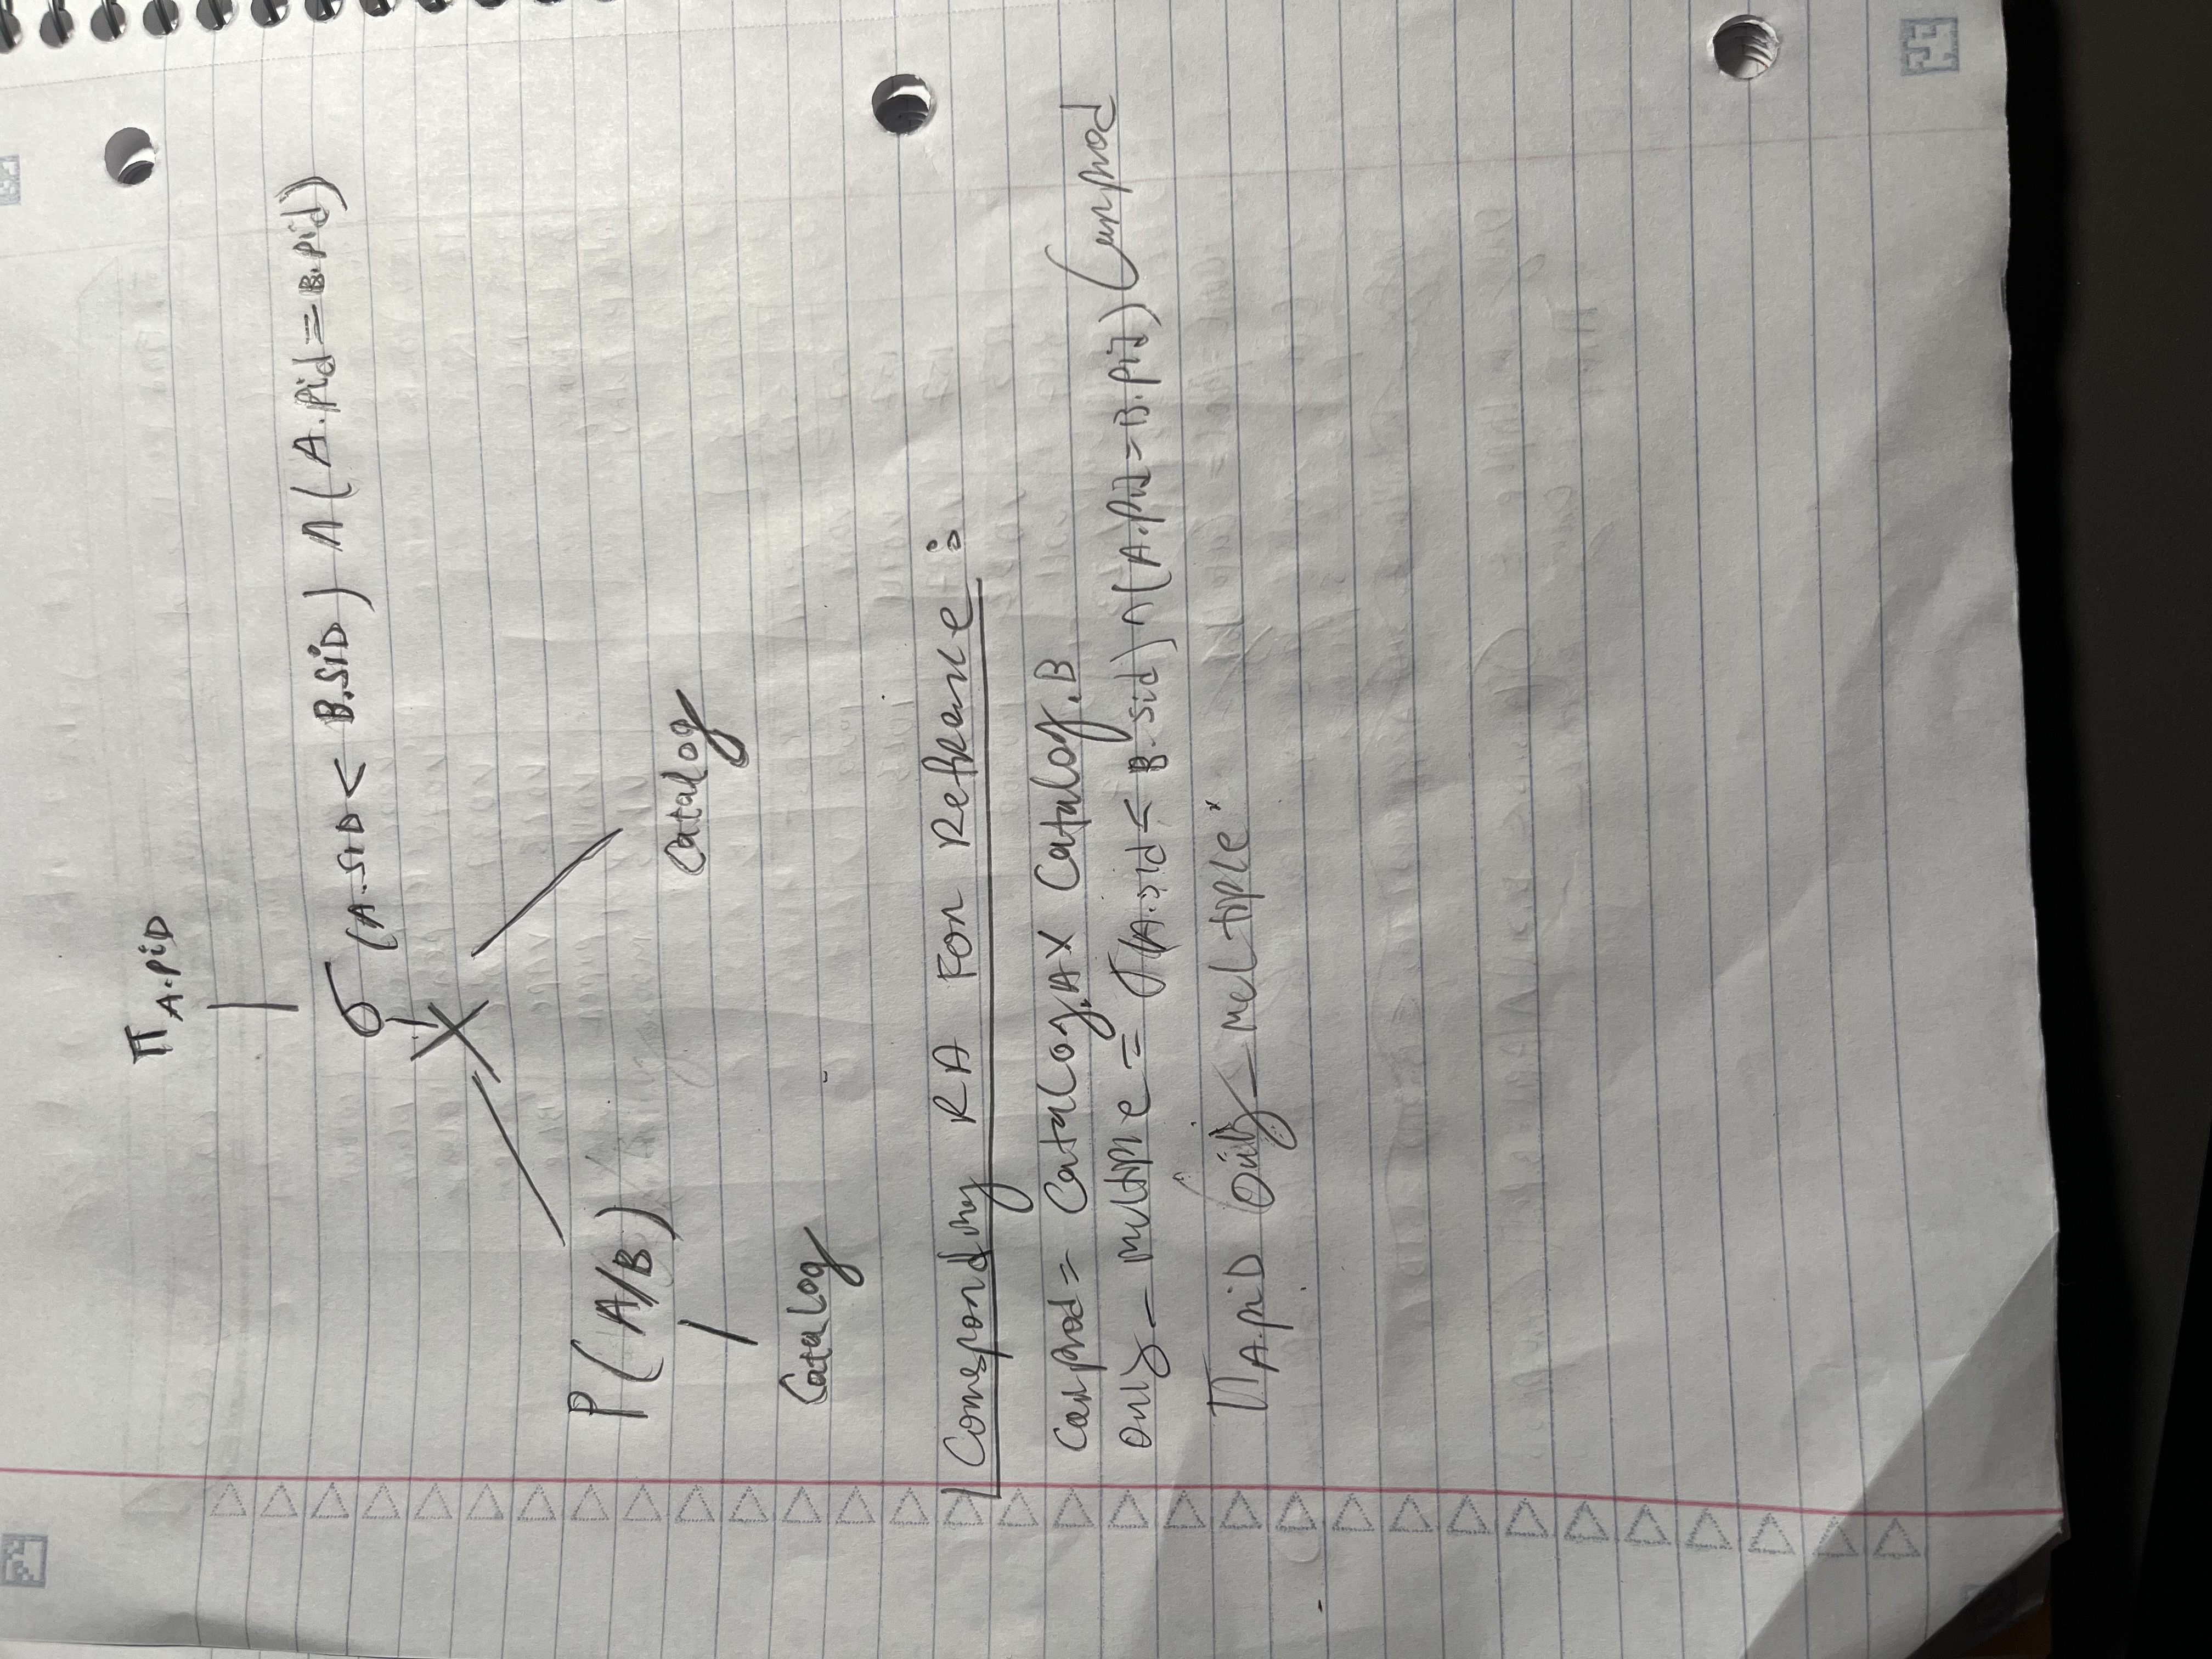 π A.PiD
σ (A.SID < B.SID) ∧ (A.Pid = B.Pid)
X
P(A/B)
Catalog
Catalog
Corresponding RA For Refrance :
Carprod = Catalog.A X Catalog.B
only_multiple = σ(A.sid < B.sid) ∧ (A.Pid = B.Pid) (carprod
π A.piD (only_multiple